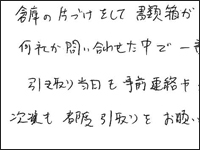 倉庫の片づけをして 書類箱が
何社か問い合わせた中で 一番
引き取り当日も事前連絡や
次准も 都度 引取りを お願い